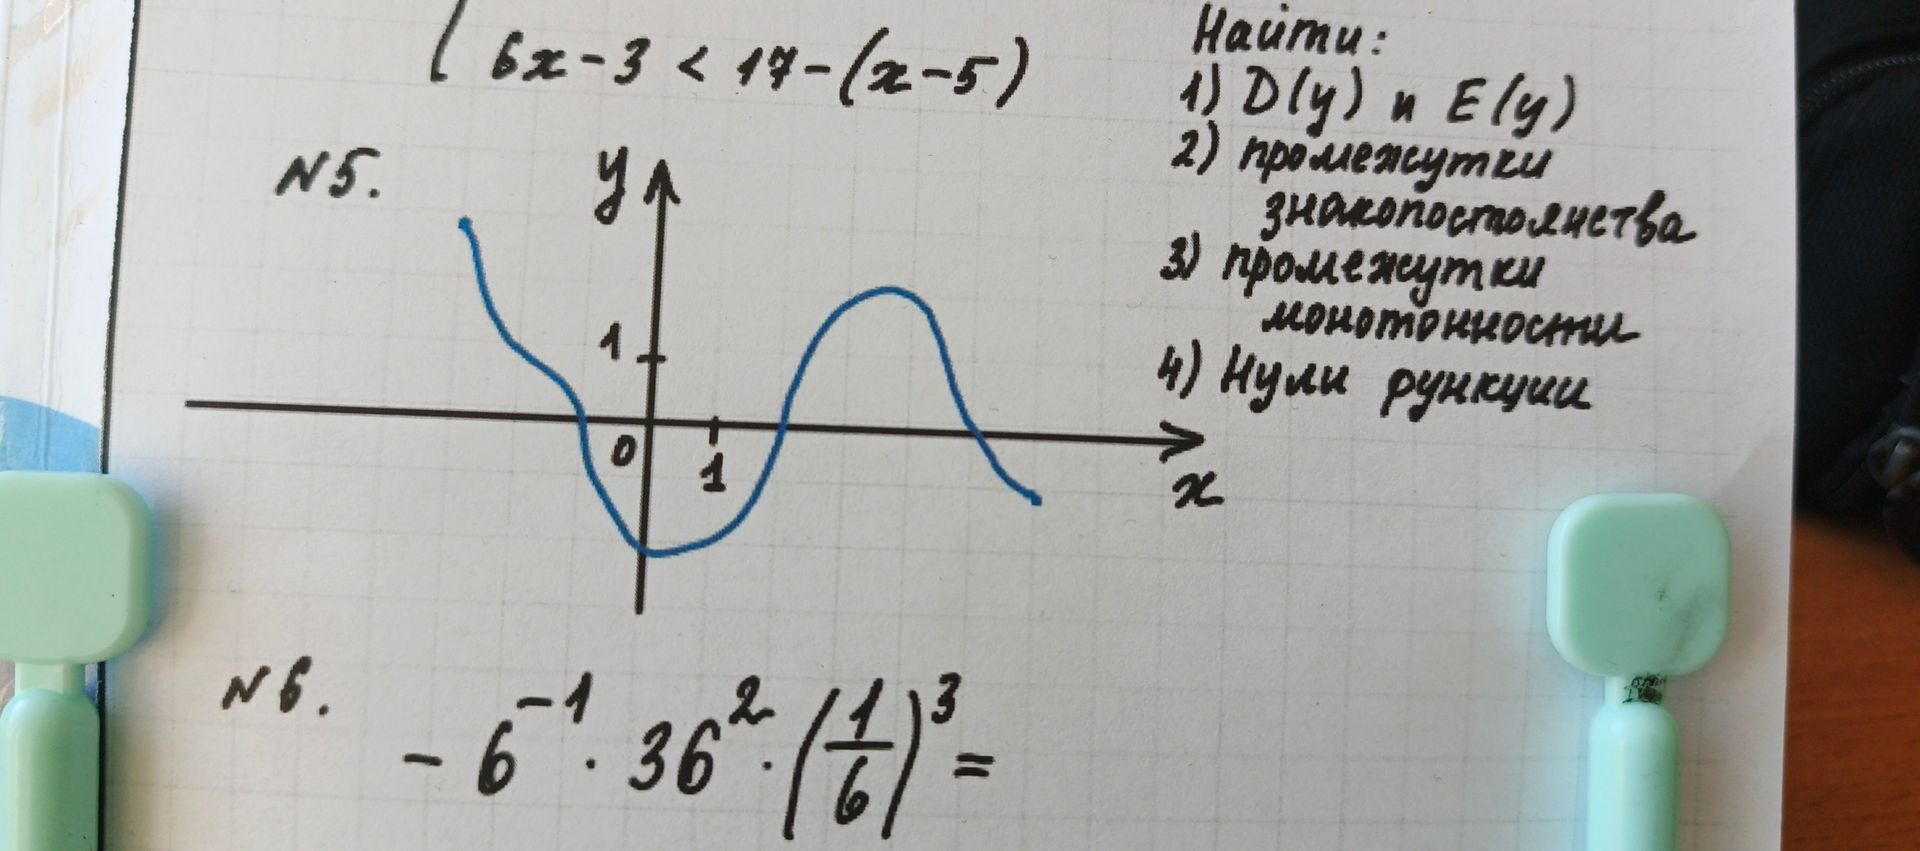 6x-3 < 17-(x-5)
Найти:
1) D(y) и E(y)
2) промежутки
знакопостоянства
3) промежутки
монотонности
4) Нули рункции
N5.
y
1
0
1
x
N6.
-6^{-1} · 36^{2} · (1/6)^{3} =